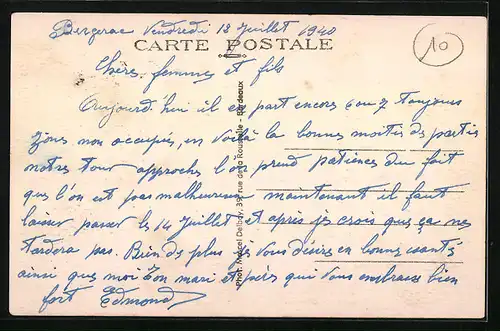 Bergerac Vendredi 18 Juillet 1940
10
CARTE POSTALE
Chère femme et fils
Aujourd'hui il est parti encore 6 ou 7 toujours
zone non occupée, en voilà la bonne moitié de partie
notre tour approche l'on prend patience du fait
que l'on est pas malheureux maintenant il faut
laisser passer le 14 Juillet et après je crois que ça ne
tardera pas. Rien de plus à vous désirer en bonne santé
ainsi que moi Ton mari et père qui vous embrasse bien
fort Edmond
Phot. Marcel Delboy, 39, rue de la Rousselle - Bordeaux